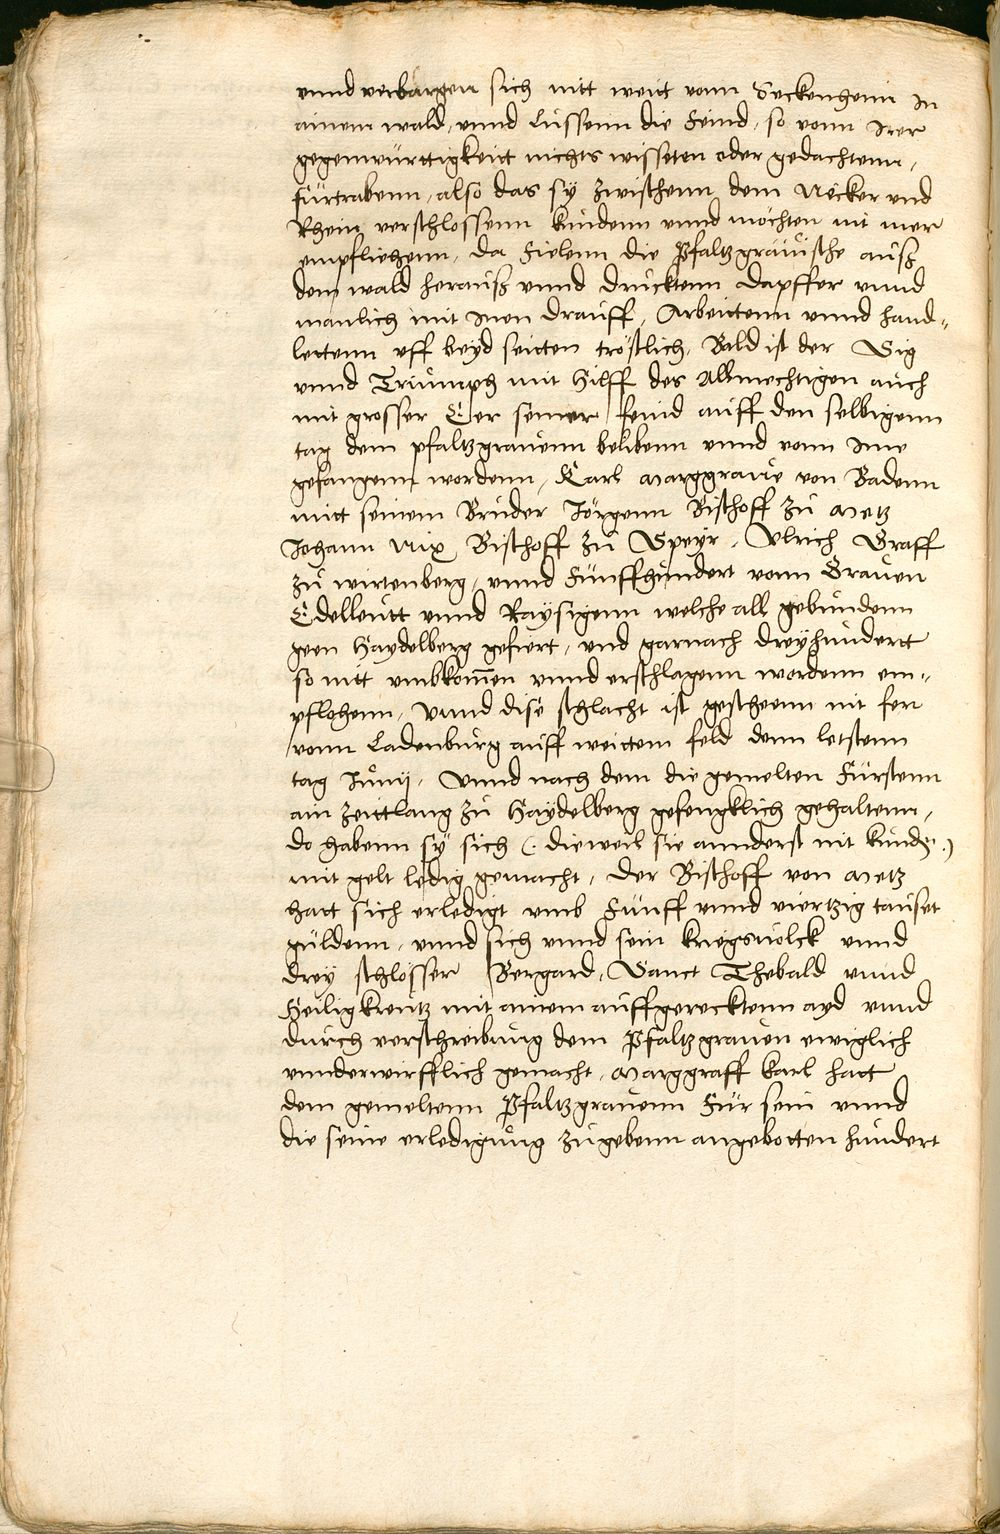 vnnd verbargen sich nitt weitt vonn Seckenheim in
ainem wald, vnnd liessenn die Feind, so vonn irer
gegenwürttigkeitt nichts wisseten oder gedachtenn,
fürtrabenn, also das sÿ zwischenn dem Necker vnd
Rhein verschlossenn kundenn vnnd möchten nit mer
empfliehenn, da Fielenn die Pfaltzgräuische auß
dem wald herauß vnnd drucktenn dapffer vnnd
manlich mit inen drauff, Arbeitenn vnnd hand-
lettenn vff beyd seitten tröstlich, Bald ist der Sig
vnnd Triumph mit Hilff des Allmechtigen auch
mit grosser Eer seiner feind auff den selbigenn
tag dem pfaltzgrauenn belibenn vnnd vonn ime
gefangenn wordenn, Karl Marggraue von Badenn
mitt seinem Bruder Jörgenn Bischoff zu Metz
Johann Nix Bischoff zu Speyr, Vlrich Graff
zu wirtenberg, vnnd Fünffhundert vonn Grauen
Edelleutt vnnd Raysigenn welche all gebundenn
geen Haydelberg gefiert, vnd garnach dreyhundertt
so nitt vmbkom̄en vnnd erschlagenn wordenn em-
pflohenn, Vnnd dise schlacht ist gescheenn nit ferr
vonn Ladenburg auff weittem feld denn letstenn
tag Junij, Vnnd nach dem die gemelten Fürstenn
ain zeittlang zu Haydelberg gefengklich gehaltenn,
do habenn sÿ sich (dieweil sie annderst nit kunden)
mit gelt ledig gemacht, Der Bischoff von Metz
hatt sich erledigt vmb Fünff vnnd viertzig tauset
güldenn, vnnd sich vnnd sein kriegsuolck vnnd
drey schlösser Bergard, Sanct Thebald vnnd
Heiligkreutz mit ainem auffgerecktenn ayd vnnd
durch verschreibung dem Pfaltzgrauen ewiglich
vnnderwirfflich gemacht, Marggraff karl hatt
dem gemeltenn Pfaltzgrauenn Für sein vnnd
die seine erledigung zugebenn angebotten hundert